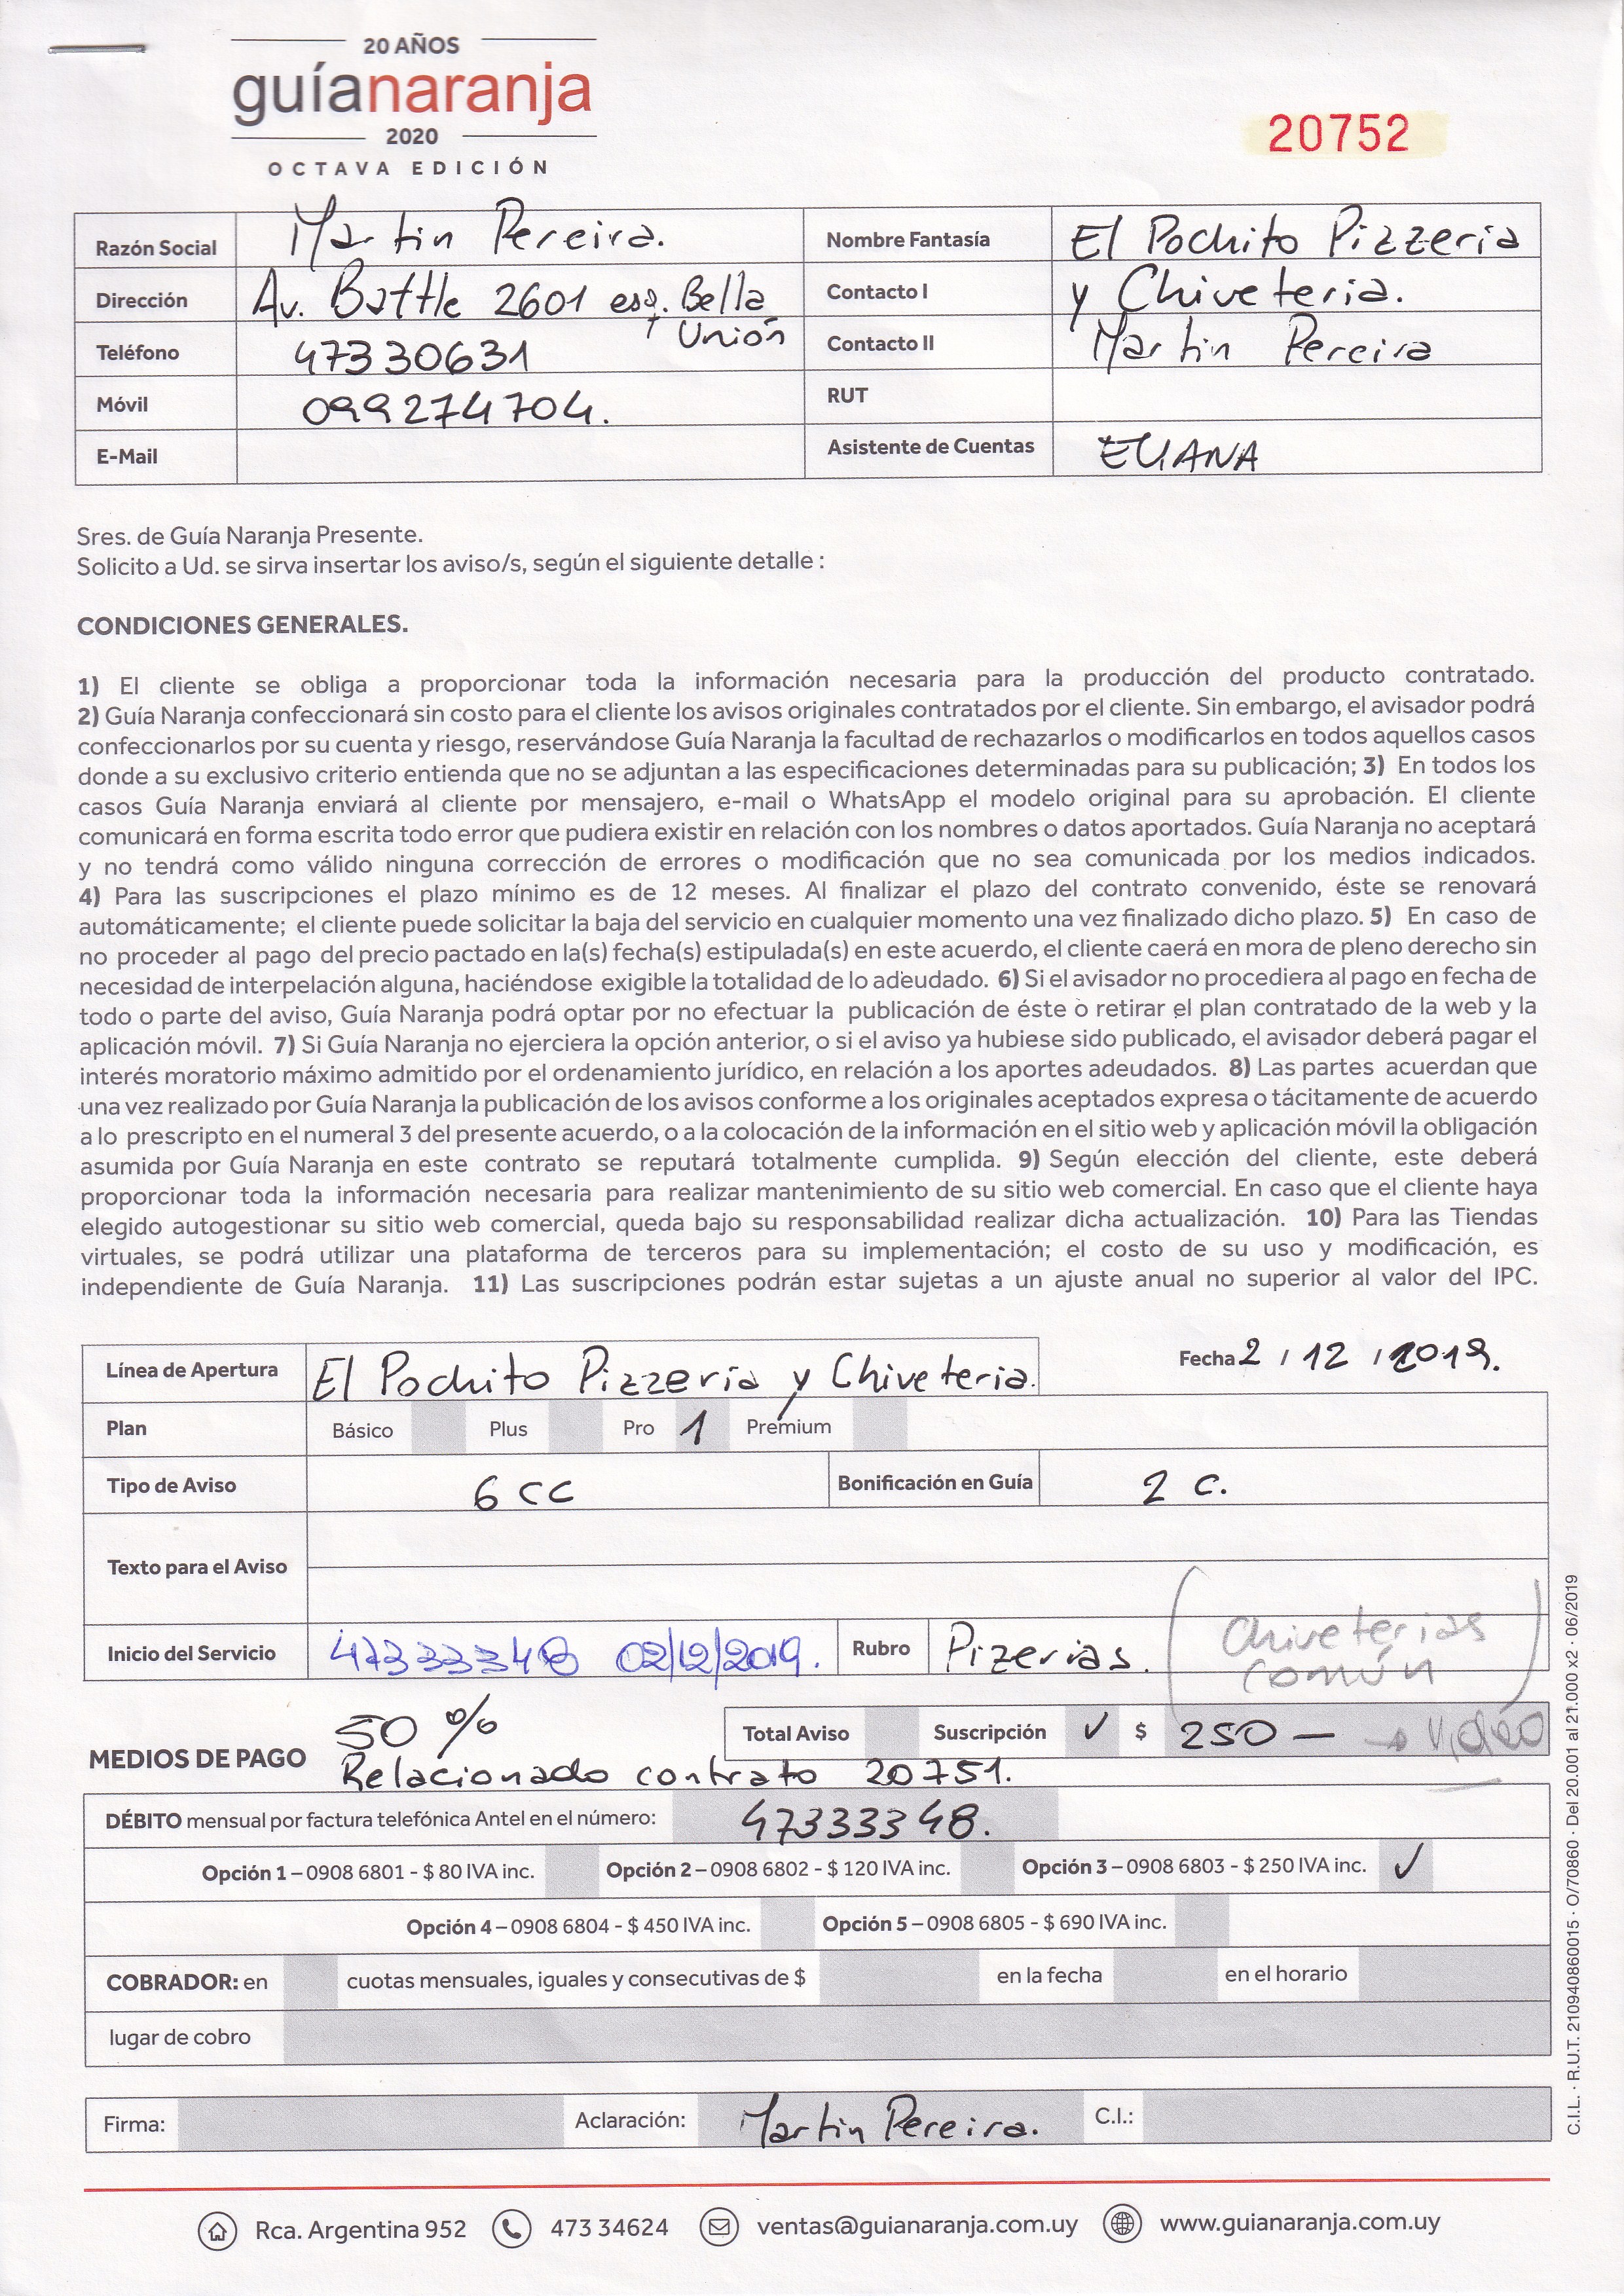 20 AÑOS
guíanaranja
2020
OCTAVA EDICIÓN
20752
Razón Social Martin Pereira. Nombre Fantasía El Pochito Pizzeria
Dirección Av. Battle 2601 esq. Bella Unión Contacto I y Chiveteria.
Teléfono 47330631 Contacto II Martin Pereira
Móvil 099274704. RUT
E-Mail Asistente de Cuentas ELIANA
Sres. de Guía Naranja Presente.
Solicito a Ud. se sirva insertar los aviso/s, según el siguiente detalle :
CONDICIONES GENERALES.
1) El cliente se obliga a proporcionar toda la información necesaria para la producción del producto contratado.
2) Guía Naranja confeccionará sin costo para el cliente los avisos originales contratados por el cliente. Sin embargo, el avisador podrá
confeccionarlos por su cuenta y riesgo, reservándose Guía Naranja la facultad de rechazarlos o modificarlos en todos aquellos casos
donde a su exclusivo criterio entienda que no se adjuntan a las especificaciones determinadas para su publicación; 3) En todos los
casos Guía Naranja enviará al cliente por mensajero, e-mail o WhatsApp el modelo original para su aprobación. El cliente
comunicará en forma escrita todo error que pudiera existir en relación con los nombres o datos aportados. Guía Naranja no aceptará
y no tendrá como válido ninguna corrección de errores o modificación que no sea comunicada por los medios indicados.
4) Para las suscripciones el plazo mínimo es de 12 meses. Al finalizar el plazo del contrato convenido, éste se renovará
automáticamente; el cliente puede solicitar la baja del servicio en cualquier momento una vez finalizado dicho plazo. 5) En caso de
no proceder al pago del precio pactado en la(s) fecha(s) estipulada(s) en este acuerdo, el cliente caerá en mora de pleno derecho sin
necesidad de interpelación alguna, haciéndose exigible la totalidad de lo adeudado. 6) Si el avisador no procediera al pago en fecha de
todo o parte del aviso, Guía Naranja podrá optar por no efectuar la publicación de éste o retirar el plan contratado de la web y la
aplicación móvil. 7) Si Guía Naranja no ejerciera la opción anterior, o si el aviso ya hubiese sido publicado, el avisador deberá pagar el
interés moratorio máximo admitido por el ordenamiento jurídico, en relación a los aportes adeudados. 8) Las partes acuerdan que
una vez realizado por Guía Naranja la publicación de los avisos conforme a los originales aceptados expresa o tácitamente de acuerdo
a lo prescripto en el numeral 3 del presente acuerdo, o a la colocación de la información en el sitio web y aplicación móvil la obligación
asumida por Guía Naranja en este contrato se reputará totalmente cumplida. 9) Según elección del cliente, este deberá
proporcionar toda la información necesaria para realizar mantenimiento de su sitio web comercial. En caso que el cliente haya
elegido autogestionar su sitio web comercial, queda bajo su responsabilidad realizar dicha actualización. 10) Para las Tiendas
virtuales, se podrá utilizar una plataforma de terceros para su implementación; el costo de su uso y modificación, es
independiente de Guía Naranja. 11) Las suscripciones podrán estar sujetas a un ajuste anual no superior al valor del IPC.
Línea de Apertura El Pochito Pizzeria y Chiveteria. Fecha 2 / 12 / 2019.
Plan Básico Plus Pro 1 Premium
Tipo de Aviso 6 CC Bonificación en Guía 2 C.
Texto para el Aviso
Inicio del Servicio 47333348 02/12/2019. Rubro Pizerias. (Chiveterias
común)
50 % Total Aviso Suscripción ✓ $ 250 — → video
MEDIOS DE PAGO Relacionado contrato 20751.
DÉBITO mensual por factura telefónica Antel en el número: 47333348.
Opción 1 – 0908 6801 - $ 80 IVA inc. Opción 2 – 0908 6802 - $ 120 IVA inc. Opción 3 – 0908 6803 - $ 250 IVA inc. ✓
Opción 4 – 0908 6804 - $ 450 IVA inc. Opción 5 – 0908 6805 - $ 690 IVA inc.
COBRADOR: en cuotas mensuales, iguales y consecutivas de $ en la fecha en el horario
lugar de cobro
Firma: Aclaración: Martin Pereira. C.I.:
Rca. Argentina 952 473 34624 ventas@guianaranja.com.uy www.guianaranja.com.uy
C.I.L. · R.U.T. 210940860015 · O/70860 · Del 20.001 al 21.000 x2 · 06/2019